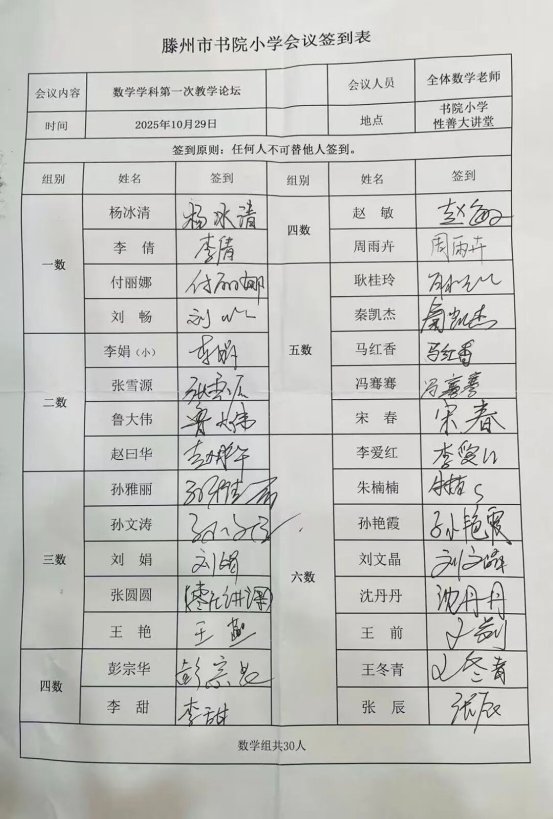 滕州市书院小学会议签到表
会议内容 数学学科第一次教学论坛 会议人员 全体数学老师
时间 2025年10月29日 地点 书院小学
性善大讲堂
签到原则：任何人不可替他人签到。
组别 姓名 签到 组别 姓名 签到
一数 杨冰清 杨冰清 四数 赵 敏 赵敏
李 倩 李倩 周雨卉 周雨卉
付丽娜 付丽娜 耿桂玲
刘 畅 刘 秦凯杰 秦凯杰
二数 李娟（小） 李娟 五数 马红香 马红香
张雪源 张雪源 冯骞骞 冯骞骞
鲁大伟 鲁大伟 宋 春 宋春
赵曰华 六数 李爱红 李爱红
三数 孙雅丽 朱楠楠 朱楠
孙文涛 孙艳霞 孙艳霞
刘 娟 刘娟 刘文晶 刘文晶
张圆圆 沈丹丹 沈丹丹
王 艳 王艳 王 前 王前
四数 彭宗华 彭宗华 王冬青 王冬青
李 甜 李甜 张 辰 张辰
数学组共30人